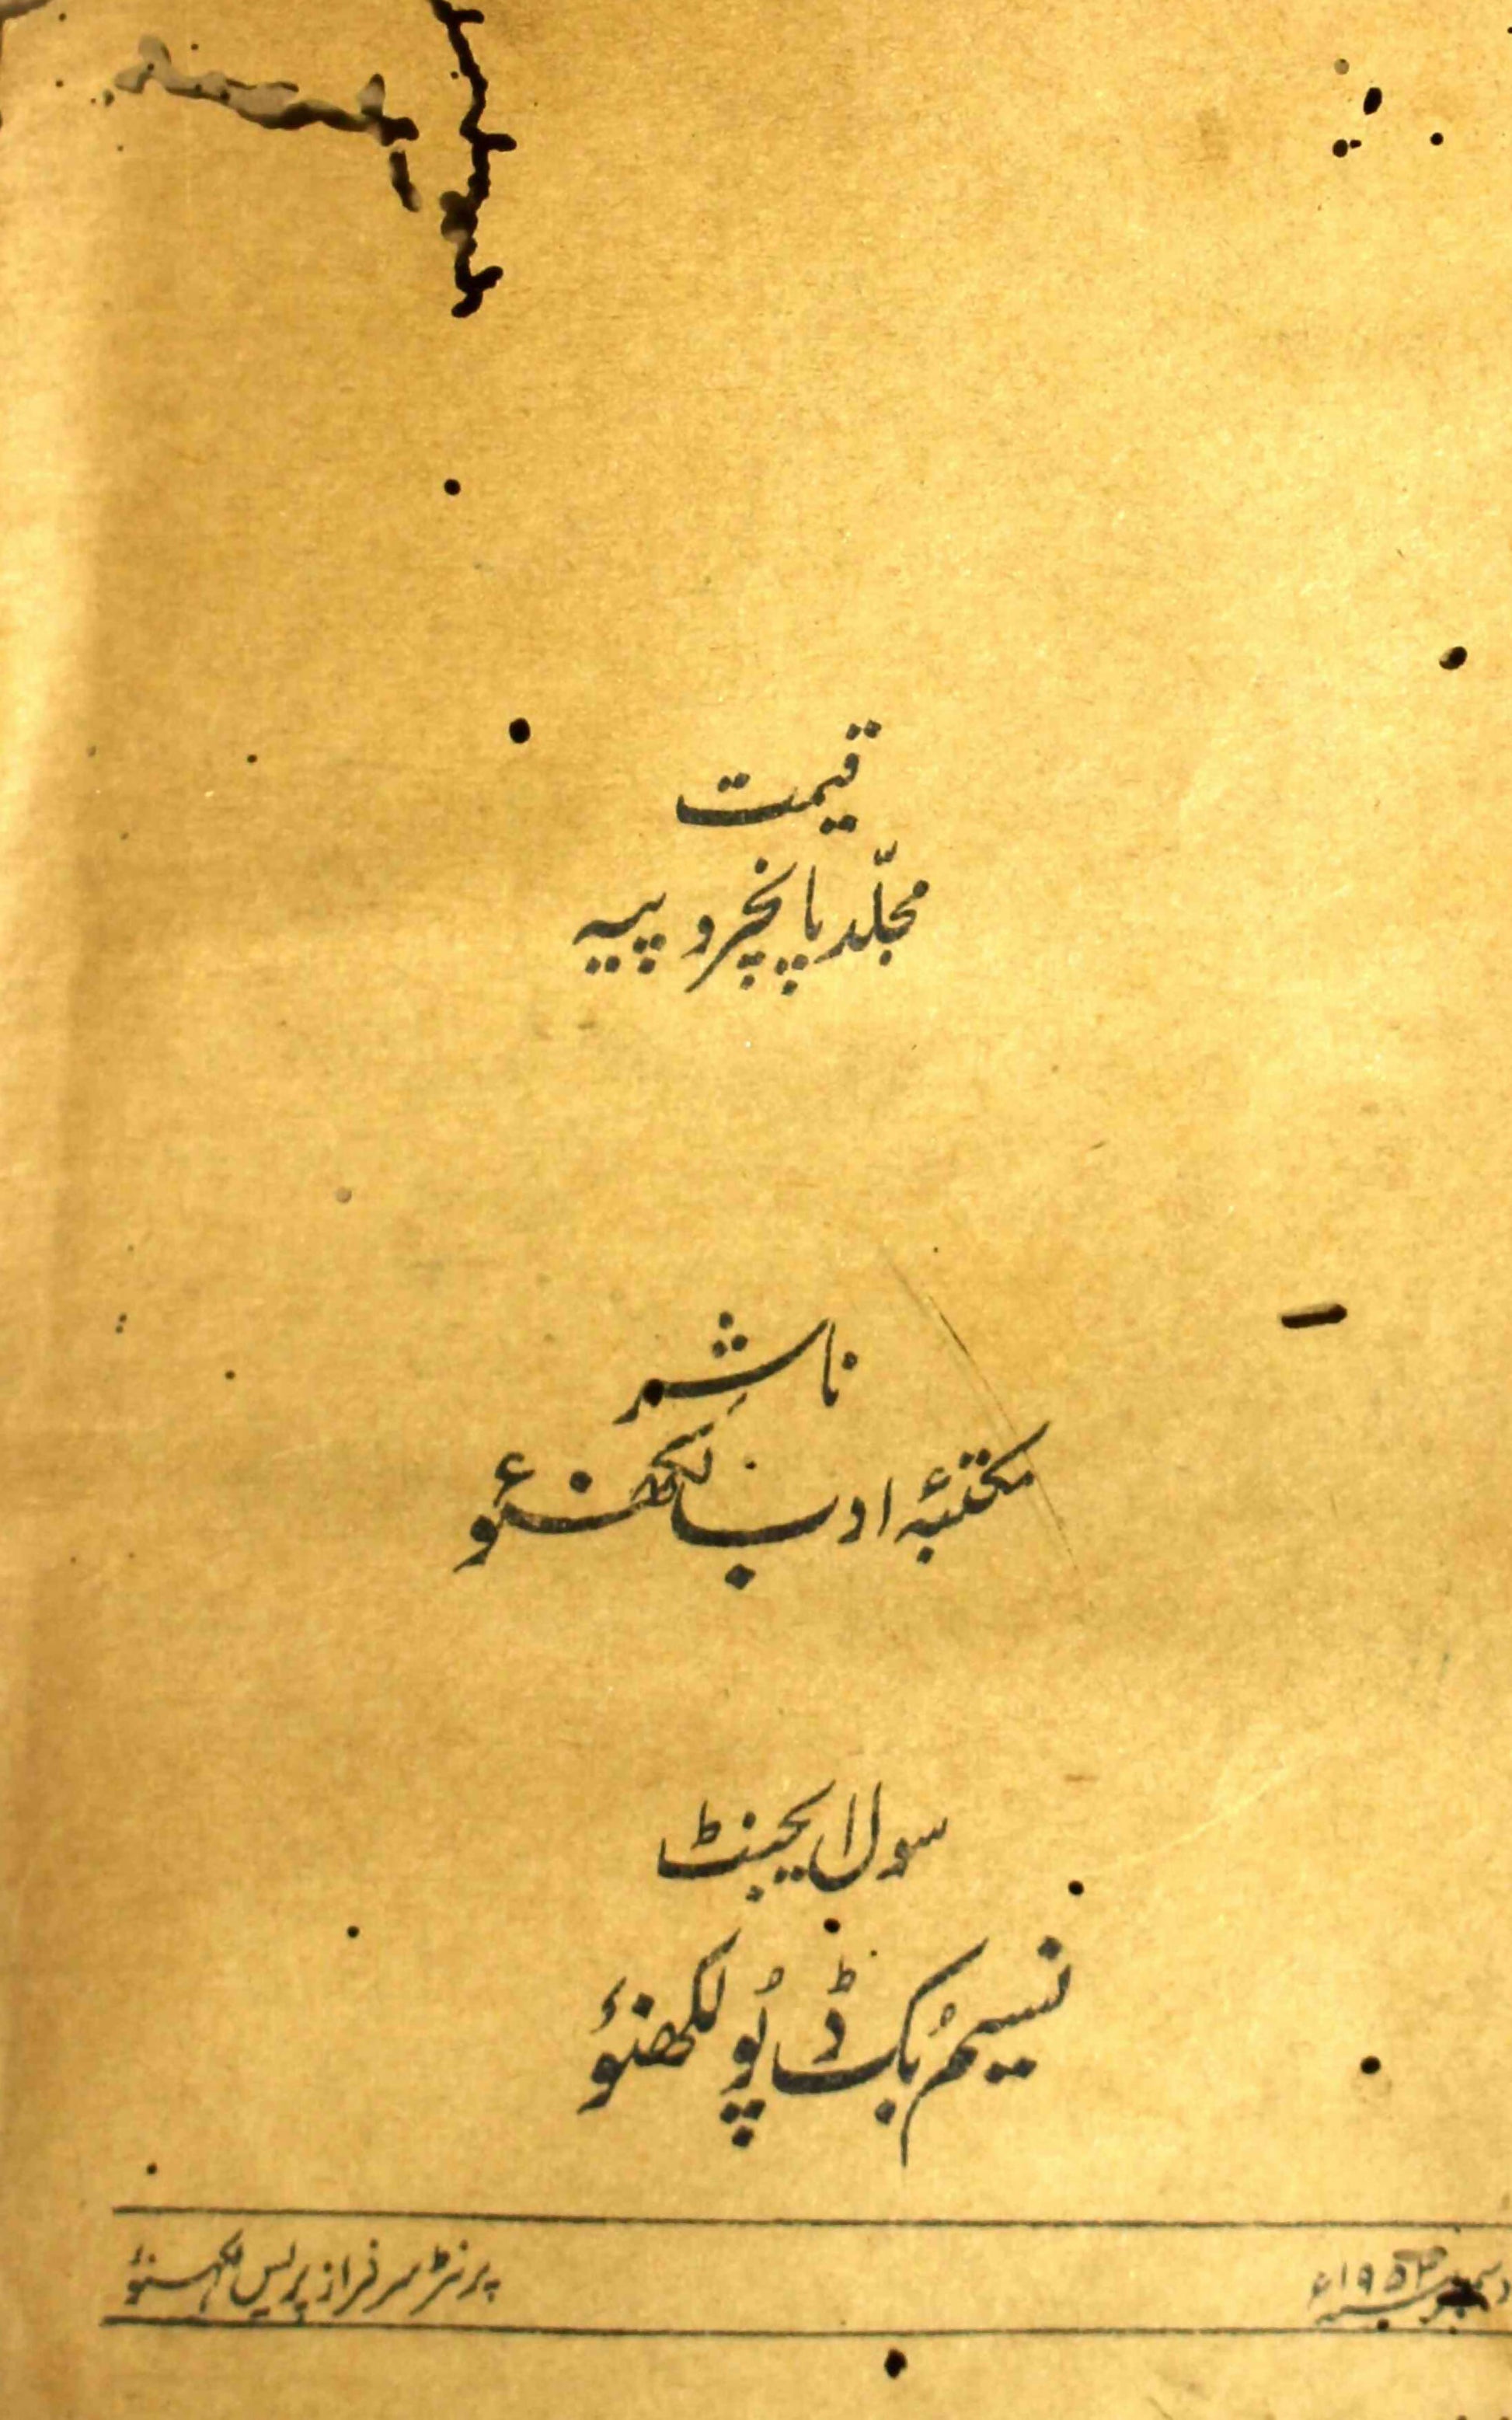 قیمت
مجلّد پانچروپیہ
ناشر
مکتبۂ ادب لکھنؤ
سول ایجنٹ
نسیم بُک ڈپُو لکھنؤ
دسمبر
پرنٹر سرفراز پریس لکھنؤ